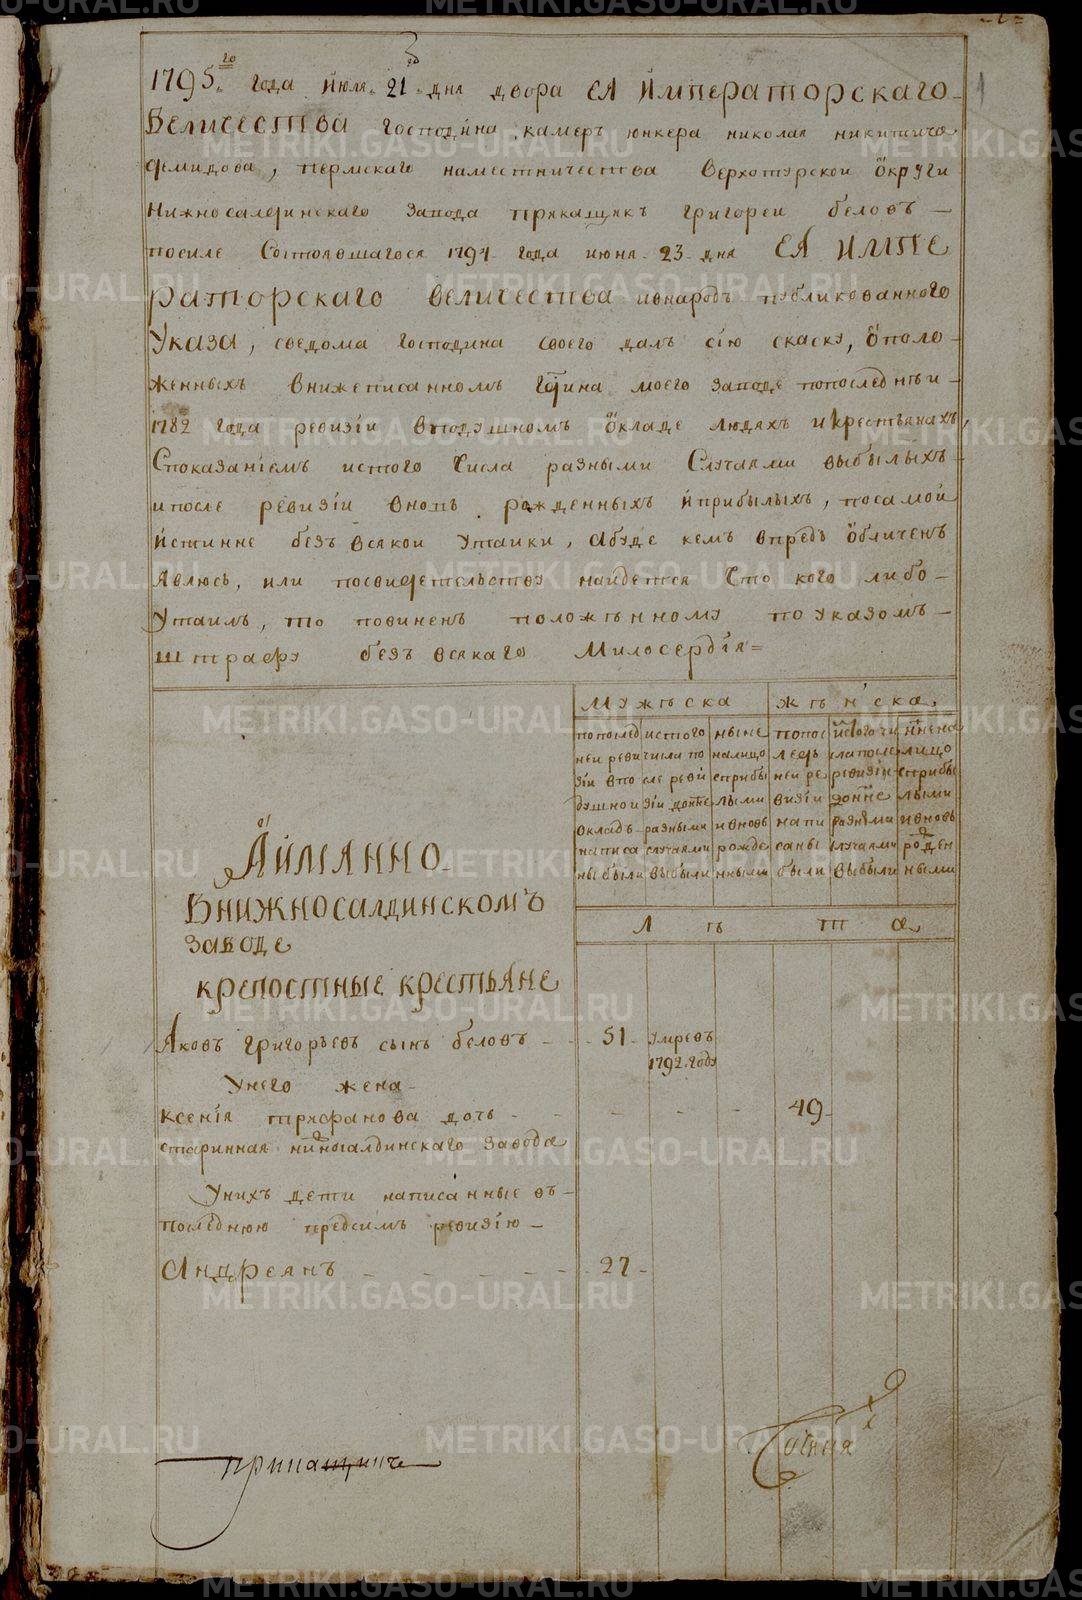 1795го года июля 21 дня двора ЕЯ Императорскаго
Величества господина камеръ юнкера николая никитича
демидова, пермскаго наместничества Верхотурской округи
Нижносалдинскаго завода прикащикъ григореи беловъ
посиле Состоявшагося 1794 года июня 23 дня ЕЯ ИМПЕ
раторскаго величества ивнародъ публикованного
Указа, сведома господина своего далъ сiю скаску, ополо
женныхъ внижеписанномъ гдина моего заводе попоследнѣи
1782 года ревизiи вподушномъ окладе людяхъ икрестьянахъ,
Споказанiемъ истого числа разными Случаями выбылыхъ
ипосле ревизiи вновь рожденныхъ иприбылыхъ, посамой
истинне безъ всякои утаики, абуде кемъ впредь обличенъ
явлюсь, или посвидетельству найдется что кого либо
утаилъ, то повиненъ положѣнному поуказомъ
штрафу безъ всякаго Милосердiя
Мужѣска
жѣнска
попослед неи ревизiи вподушнои окладъ написаны были
истого числа после ревизiи донне разными случаями выбыли
ныне налицо сприбылыми ивновь рожденными
попоследнеи ревизiи написаны были
истого числа после ревизiи донне разными случаями выбыли
ныне налицо сприбылыми ивновь рожденными
Л ѣ т а
Аймянно
Внижносалдинскомъ
заводе
крепостные крестьяне
Яковъ григорьевъ сынъ беловъ 51 умревъ
1792 году
Унего жена
Ксенiя трифанова дочь 49
старинная нижносалдинскаго завода
Унихъ дети написанные въ
последнюю передсимъ ревизiю
Андреянъ 27
прикащикъ
METRIKI.GASO-URAL.RU